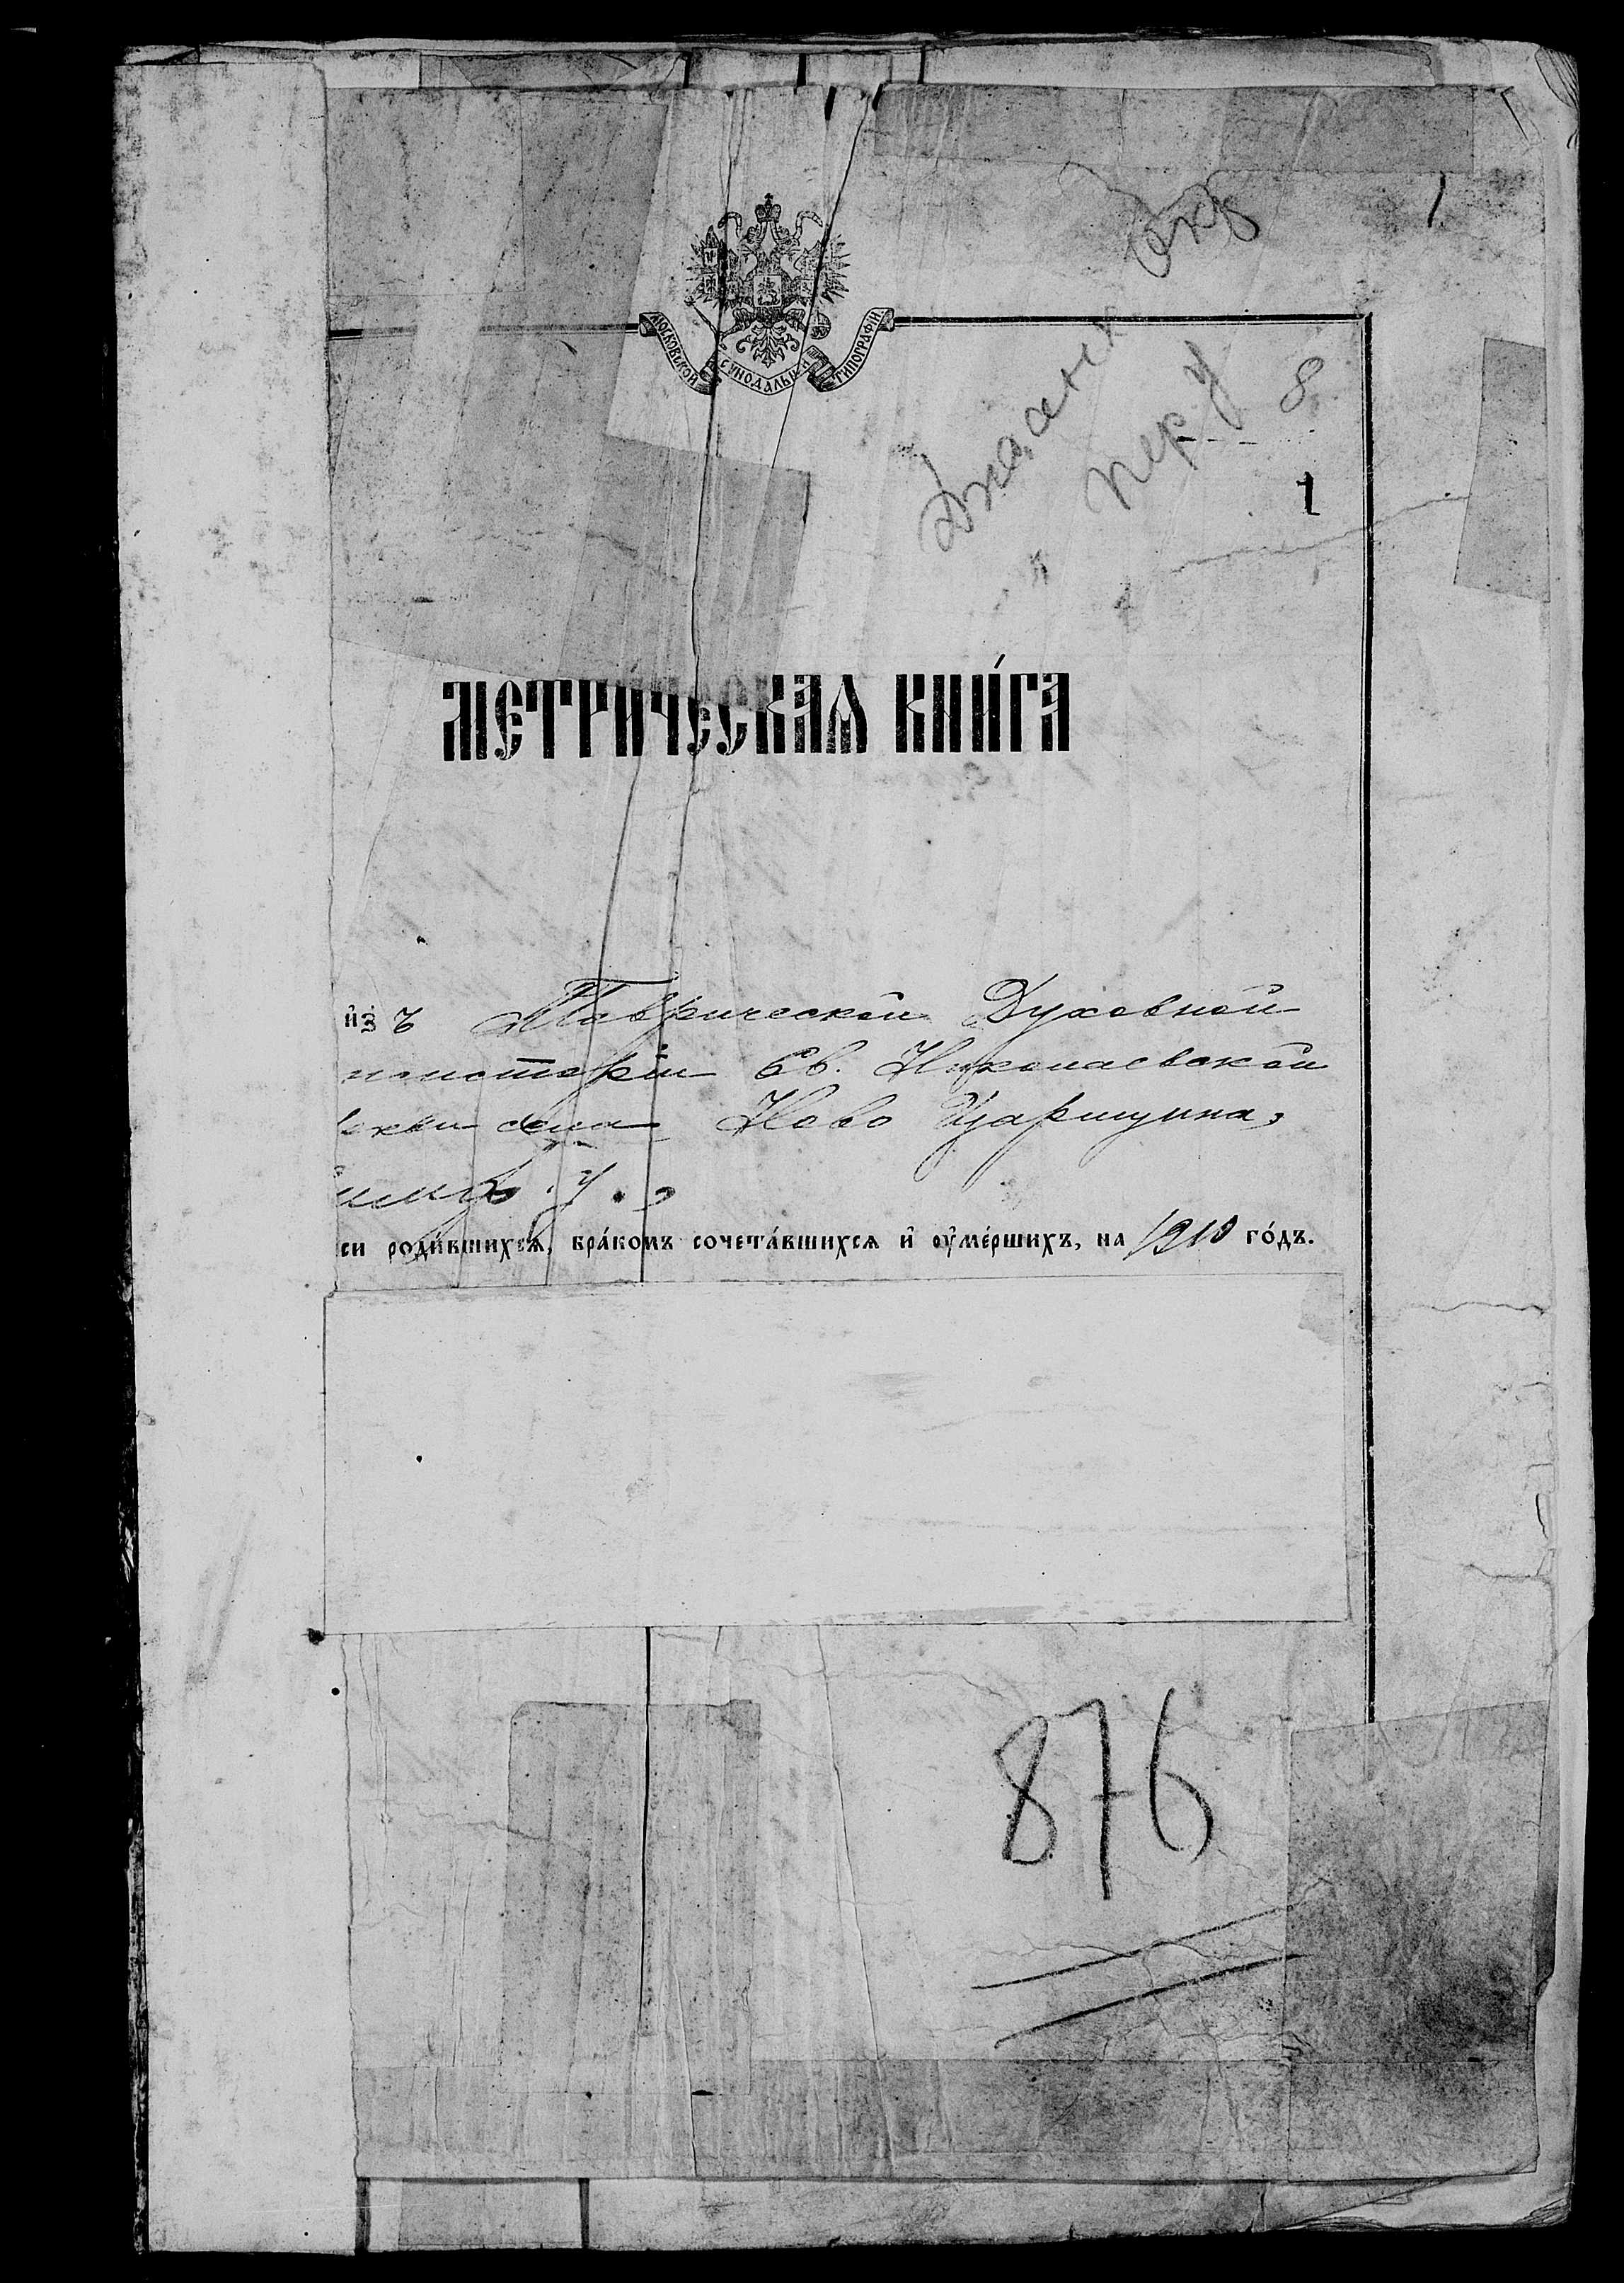 МОСКОВСКОЙ СУНОДАЛЬН ТИПОГРАФІИ
Джанк
окр
пер. У
8
1
МЕТРИ́ЧЕСКАѦ КНИ́ГА
и҆зъ Таврической Духовной
нсисторіи Св. Николаевской
ркви села Ново Царицина,
си роди́вшихсѧ, бра́комъ сочета́вшихсѧ и҆ ᲂу҆ме́ршихъ, на 1910 го́дъ.
876